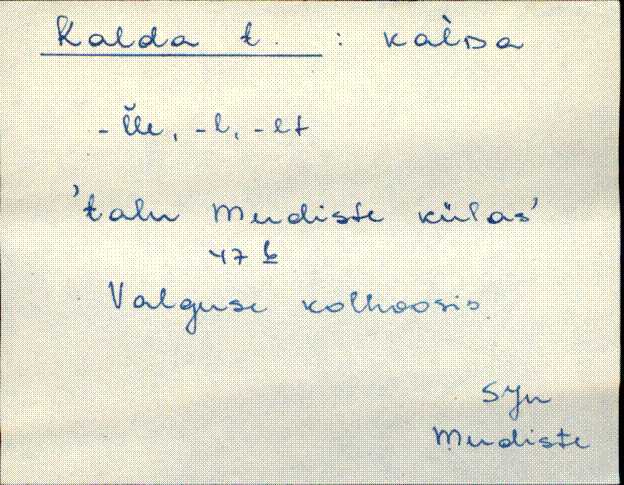 Kalda t. : kal̀da
-l̆le, -l, -lt
'talu Mudiste külas'
47 b
Valguse kolhoosis.
SJn
Mudiste